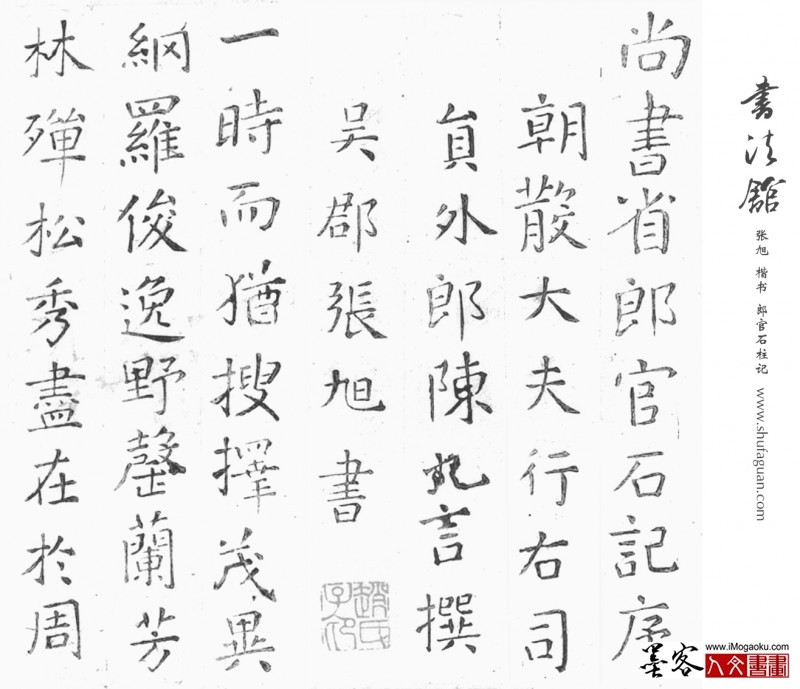 尚書省郎官石記序
朝散大夫行右司
員外郎陳九言撰
吴郡張旭書
一時而猶搜擇茂異
網羅俊逸野罄蘭芳
林殫松秀盡在於周
書法館
张旭 楷书 郎官石柱记 www.shufaguan.com
墨客
www.iMogaoku.com
人文書畫